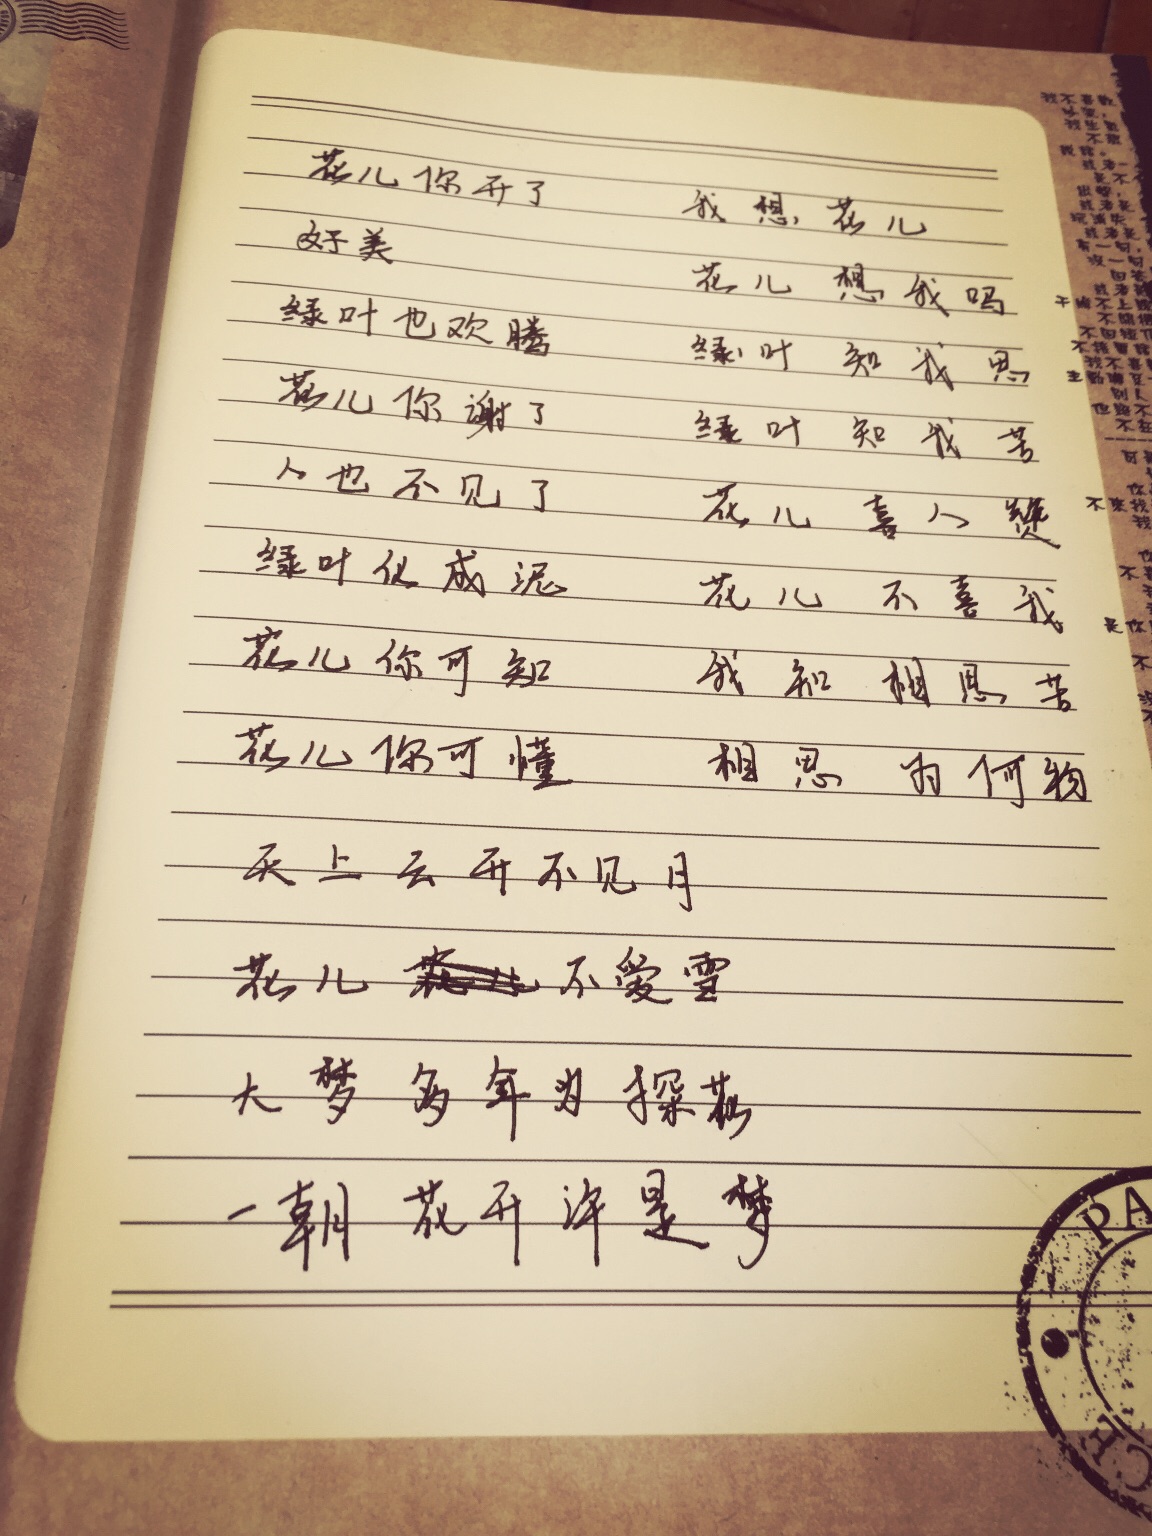 花儿你开了
好美
绿叶也欢腾
花儿你谢了
人也不见了
绿叶化成泥
花儿你可知
花儿你可懂
我想花儿
花儿想我吗
绿叶知我思
绿叶知我苦
花儿喜人
花儿不喜我
我知相思苦
相思为何物
天上云开不见月
花儿不爱雪
大梦多年为探花
一朝花开许是梦
PA
CE